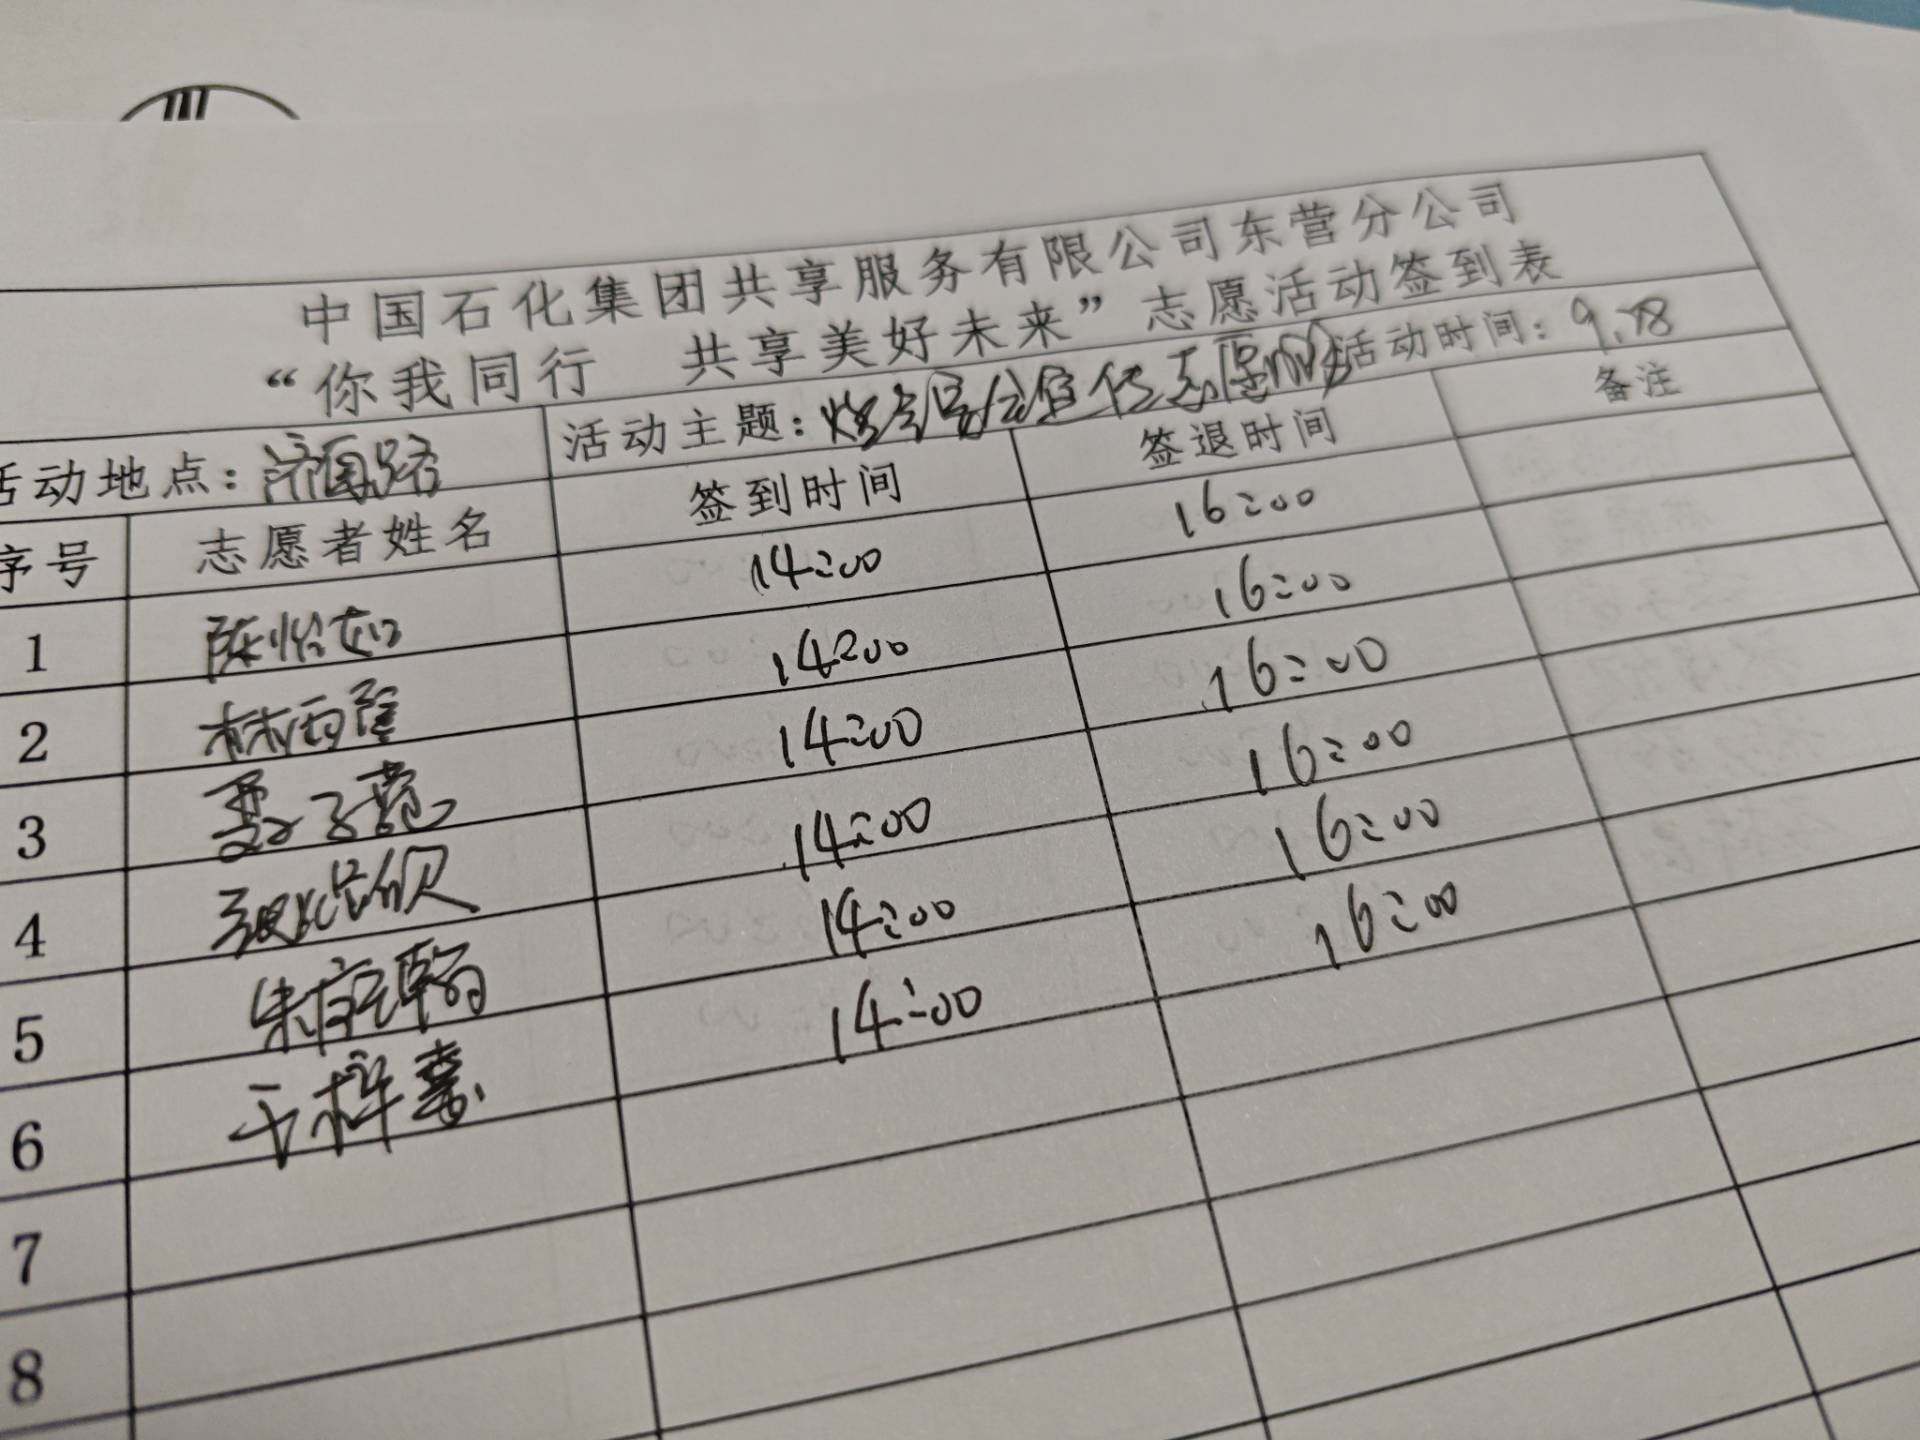 中国石化集团共享服务有限公司东营分公司
“你我同行 共享美好未来”志愿活动签到表
活动地点：济南路 活动主题：宣传志愿 活动时间：9.28
序号 志愿者姓名 签到时间 签退时间 备注
1 陈怡如 14:00 16:00
2 林雨 14:00 16:00
3 子 14:00 16:00
4 张 14:00 16:00
5 朱 14:00 16:00
6 于梓 14:00 16:00
7
8